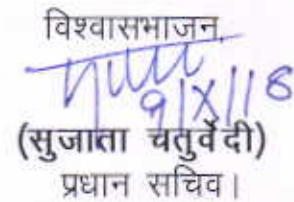 विश्वासभाजन,
9/X/18
(सुजाता चतुर्वेदी)
प्रधान सचिव।